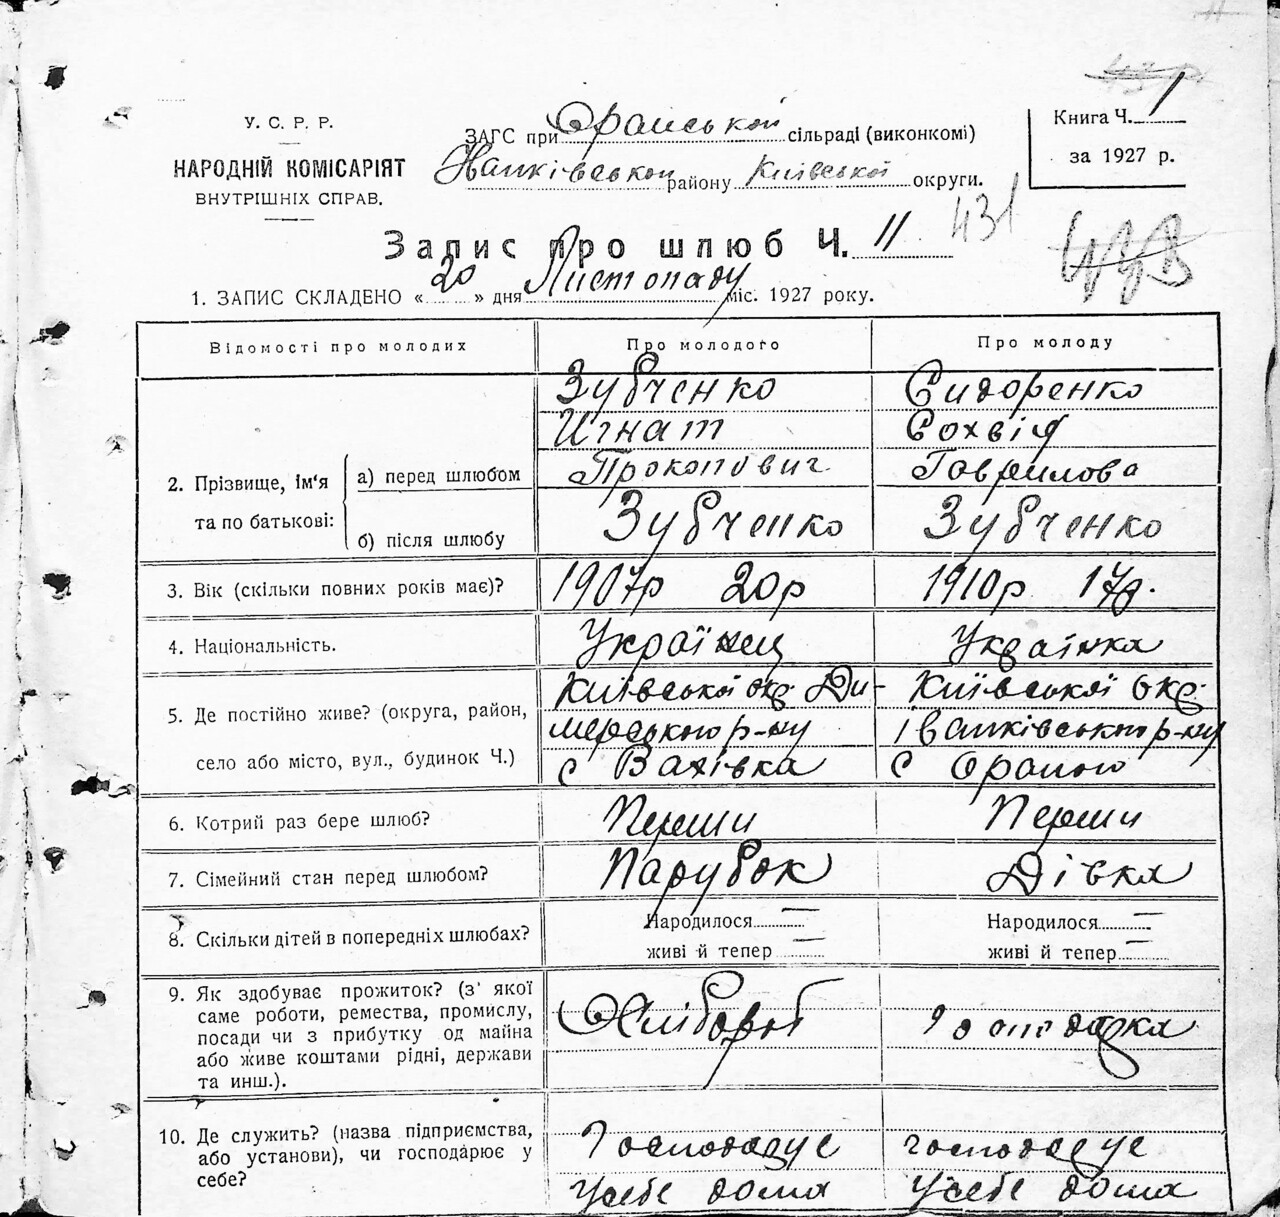 У. С. Р. Р.
НАРОДНІЙ КОМІСАРІЯТ
ВНУТРІШНІХ СПРАВ.
ЗАГС при Оранській сільраді (виконкомі)
району Київської округи.
Книга Ч. 1
за 1927 р.
Запис про шлюб Ч. 11
431
1. ЗАПИС СКЛАДЕНО « 20 » дня Листопаду міс. 1927 року.
Відомості про молодих Про молодого Про молоду
2. Прізвище, ім'я та по батькові:
а) перед шлюбом
Зубченко Сидоренко
Игнат Сохвія
Прокопович Гаврилова
б) після шлюбу Зубченко Зубченко
3. Вік (скільки повних років має)? 1907р 20р 1910р 17р.
4. Національність. Українец Українка
5. Де постійно живе? (округа, район,
село або місто, вул., будинок Ч.)
Київської окр. Ди- Київської окр.
мерського р-ну Іванківського р-ну
с Вахівка с Ораного
6. Котрий раз бере шлюб? Перши Перши
7. Сімейний стан перед шлюбом? Парубок Дівка
8. Скільки дітей в попередніх шлюбах? Народилося — Народилося —
живі й тепер — живі й тепер —
9. Як здобуває прожиток? (з якої
саме роботи, ремества, промислу,
посади чи з прибутку од майна
або живе коштами рідні, держави
та инш.).
Хлібороб господарка
10. Де служить? (назва підприємства,
або установи), чи господарює у
себе?
Господарує господарує
У себе дома У себе дома